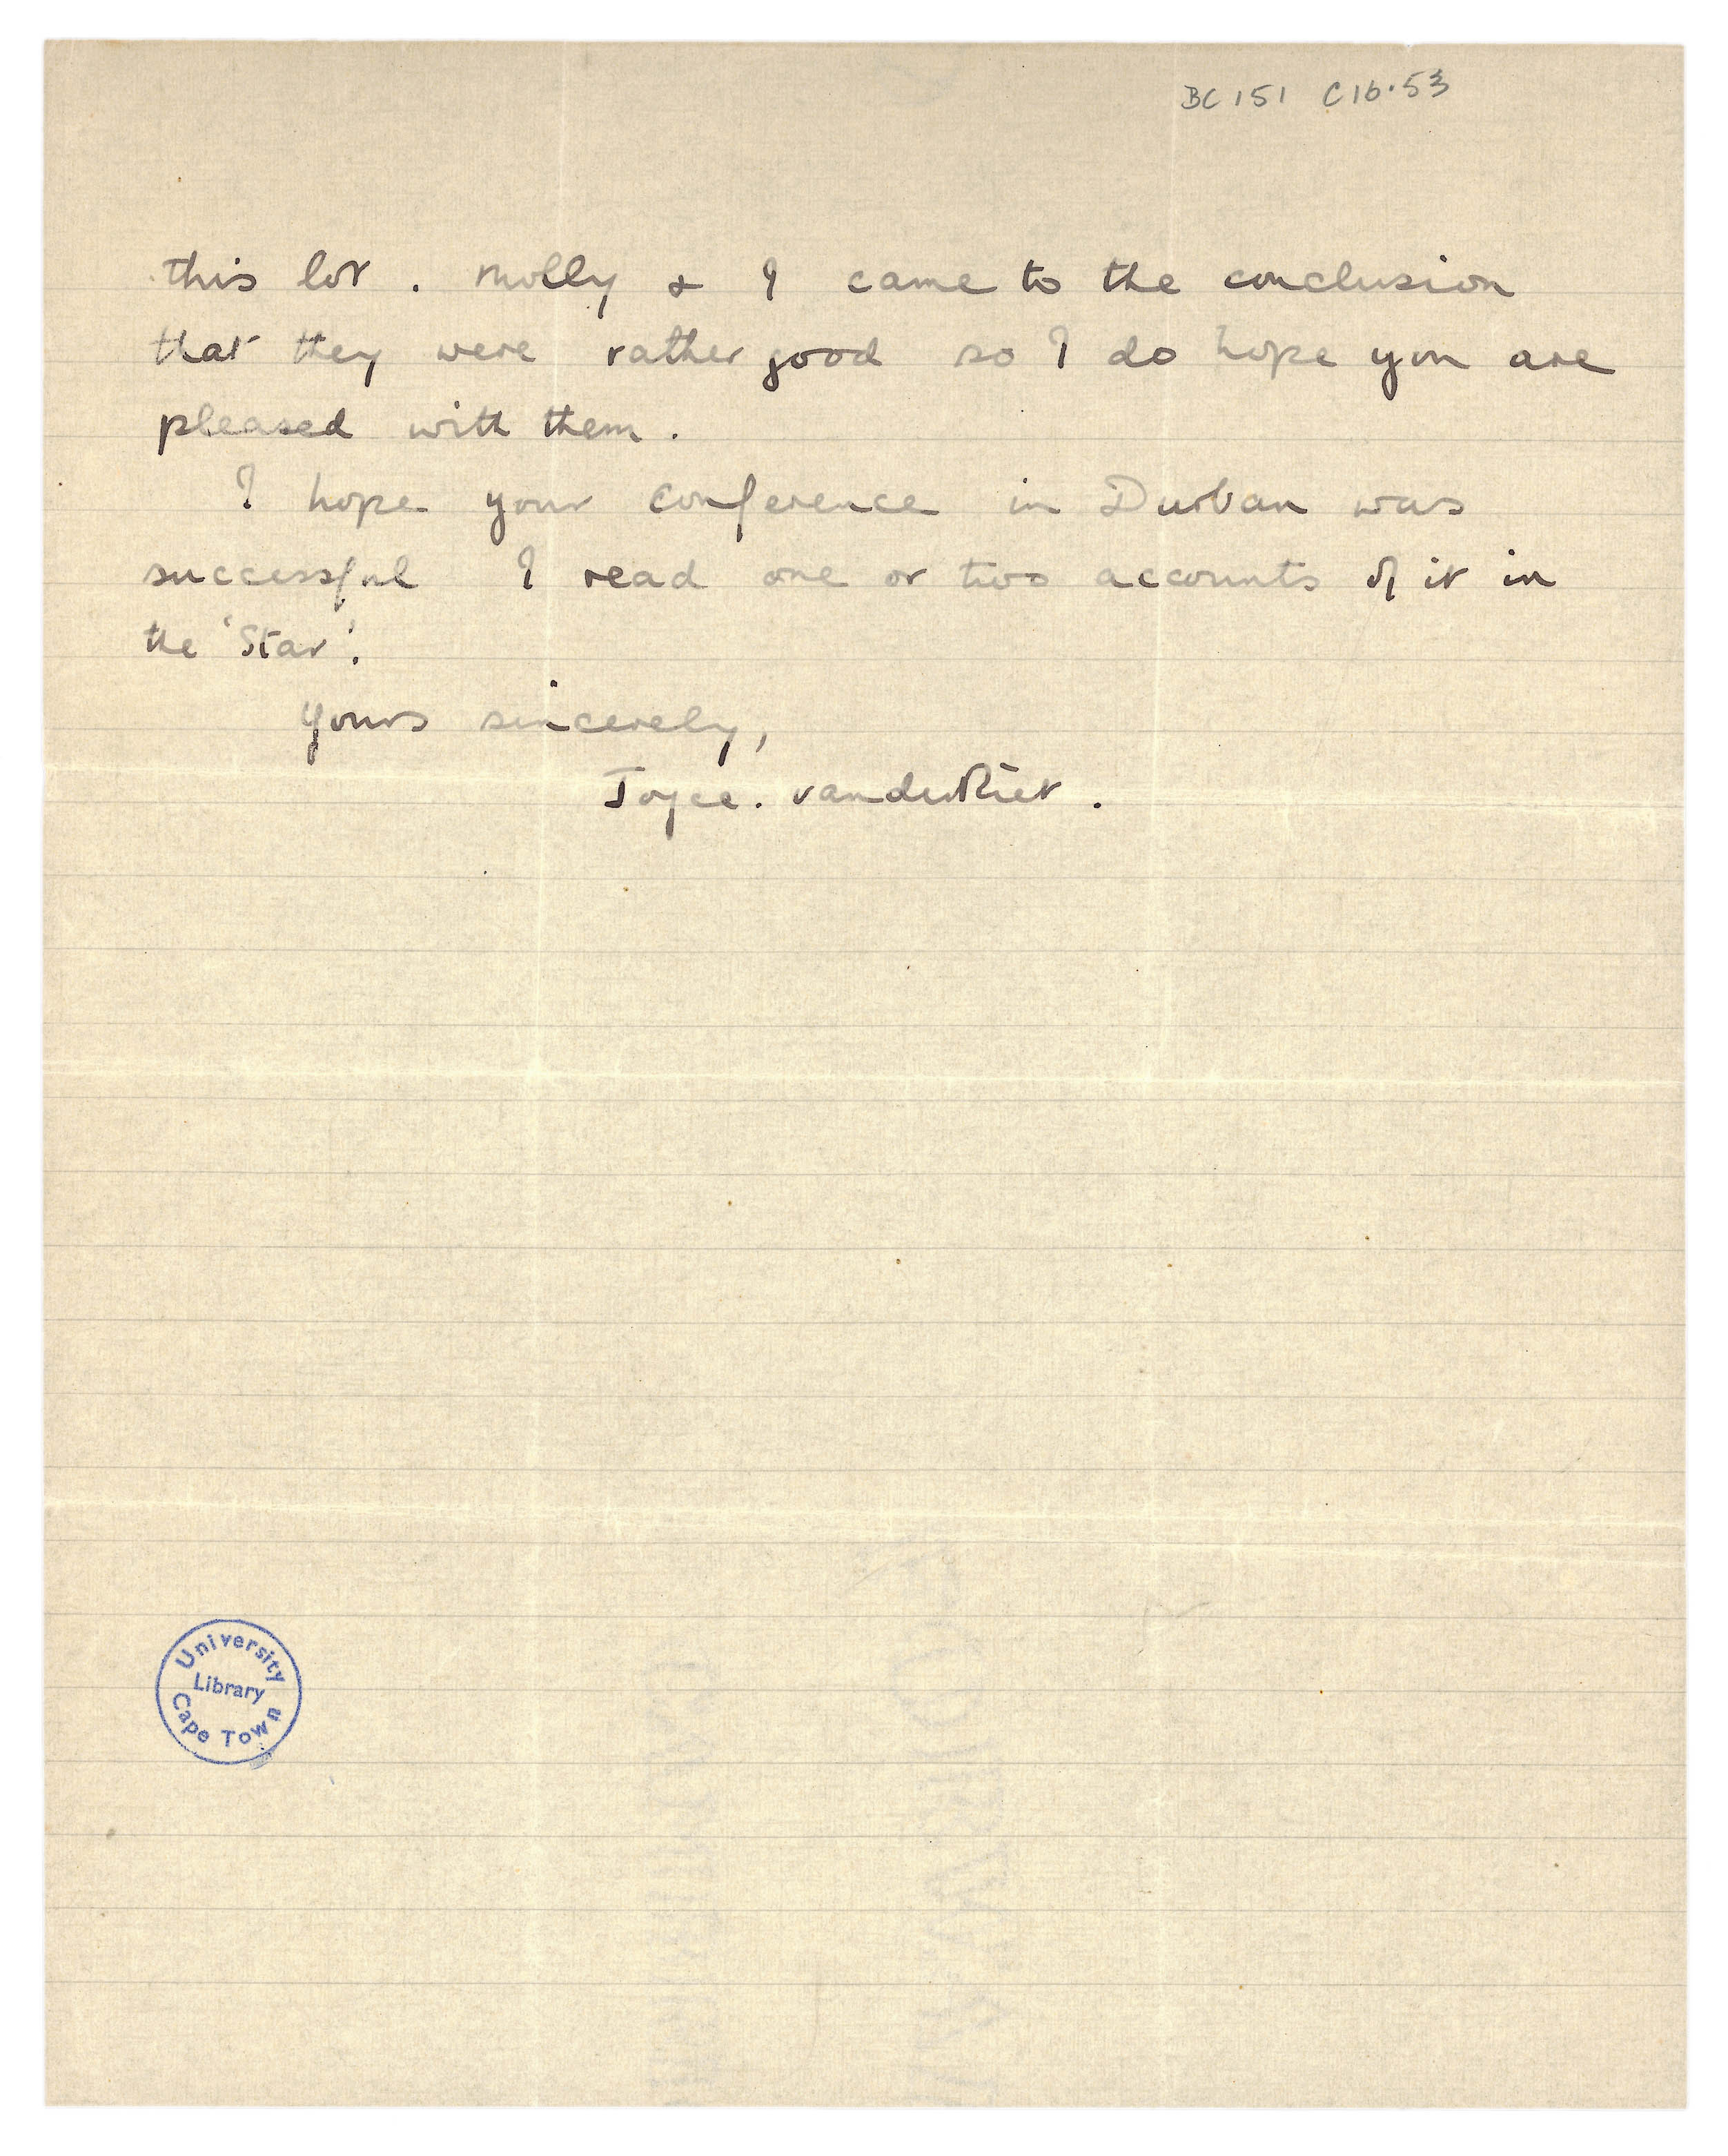 BC 151 C16.53
this lot. Molly & I came to the conclusion
that they were rather good so I do hope you are
pleased with them.
I hope your conference in Durban was
successful I read one or two accounts of it in
the 'Star'.
Yours sincerely,
Joyce. vanderRiet.
University
Library
Cape Town